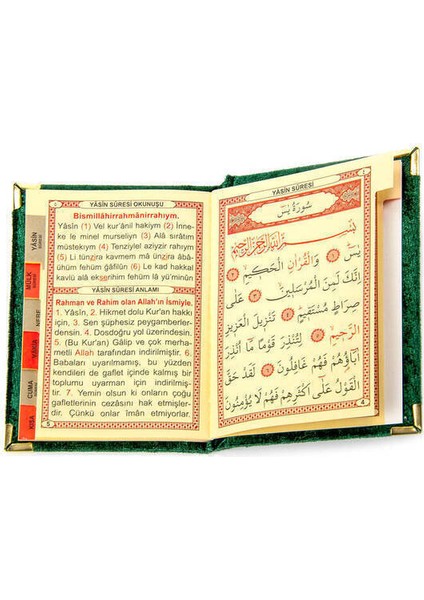 YÂSİN SÛRESİ OKUNUŞU
Bismillâhirrahmânirrahıym.
Yâsîn (1) Vel kur'ânil hakiym (2) İnne-
ke le minel murseliyn (3) Alâ sırâtım
müstekıym (4) Tenziylel aziyzir rahıym
(5) Li tünzira kavmem mâ ünzira âbâ-
ühüm fehüm ğâfilûn (6) Le kad hakkal
kavlü alâ ekserihim fehüm lâ yü'minûn
YÂSİN SÛRESİ ANLAMI
Rahman ve Rahim olan Allah'ın İsmiyle.
1. Yâsîn, 2. Hikmet dolu Kur'an hakkı
için, 3. Sen şüphesiz peygamberler-
densin. 4. Dosdoğru yol üzerindesin.
5. (Bu Kur'an) Gâlip ve çok merha-
metli Allah tarafından indirilmiştir. 6.
Babaları uyarılmamış, bu yüzden
kendileri de gaflet içinde kalmış bir
toplumu uyarman için indirilmiş-
tir. 7. Yemin olsun ki onların çoğu
gafletlerinin cezasını hak etmişler-
dir. Çünkü onlar İman etmiyorlar.
5
YÂSİN
MÜLK
NEBE
CUMA
KISA
YÂSİN SÛRESİ
سُورَةُ يٰسٓ
بِسْمِ اللّٰهِ الرَّحْمٰنِ الرَّحِيمِ
يٰسٓ ﴿١﴾ وَالْقُرْاٰنِ الْحَكِيمِ ﴿٢﴾
اِنَّكَ لَمِنَ الْمُرْسَلِينَ ﴿٣﴾ عَلٰى
صِرَاطٍ مُسْتَقِيمٍ ﴿٤﴾ تَنْزِيلَ الْعَزِيزِ
الرَّحِيمِ ﴿٥﴾ لِتُنْذِرَ قَوْمًا مَٓا اُنْذِرَ
اٰبَٓاؤُهُمْ فَهُمْ غَافِلُونَ ﴿٦﴾ لَقَدْ حَقَّ
الْقَوْلُ عَلٰٓى اَكْثَرِهِمْ فَهُمْ لَا يُؤْمِنُونَ
4